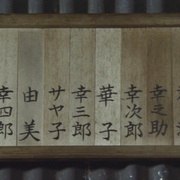 幸之助
幸次郎
華子
幸三郎
サヤ子
由美
幸四郎